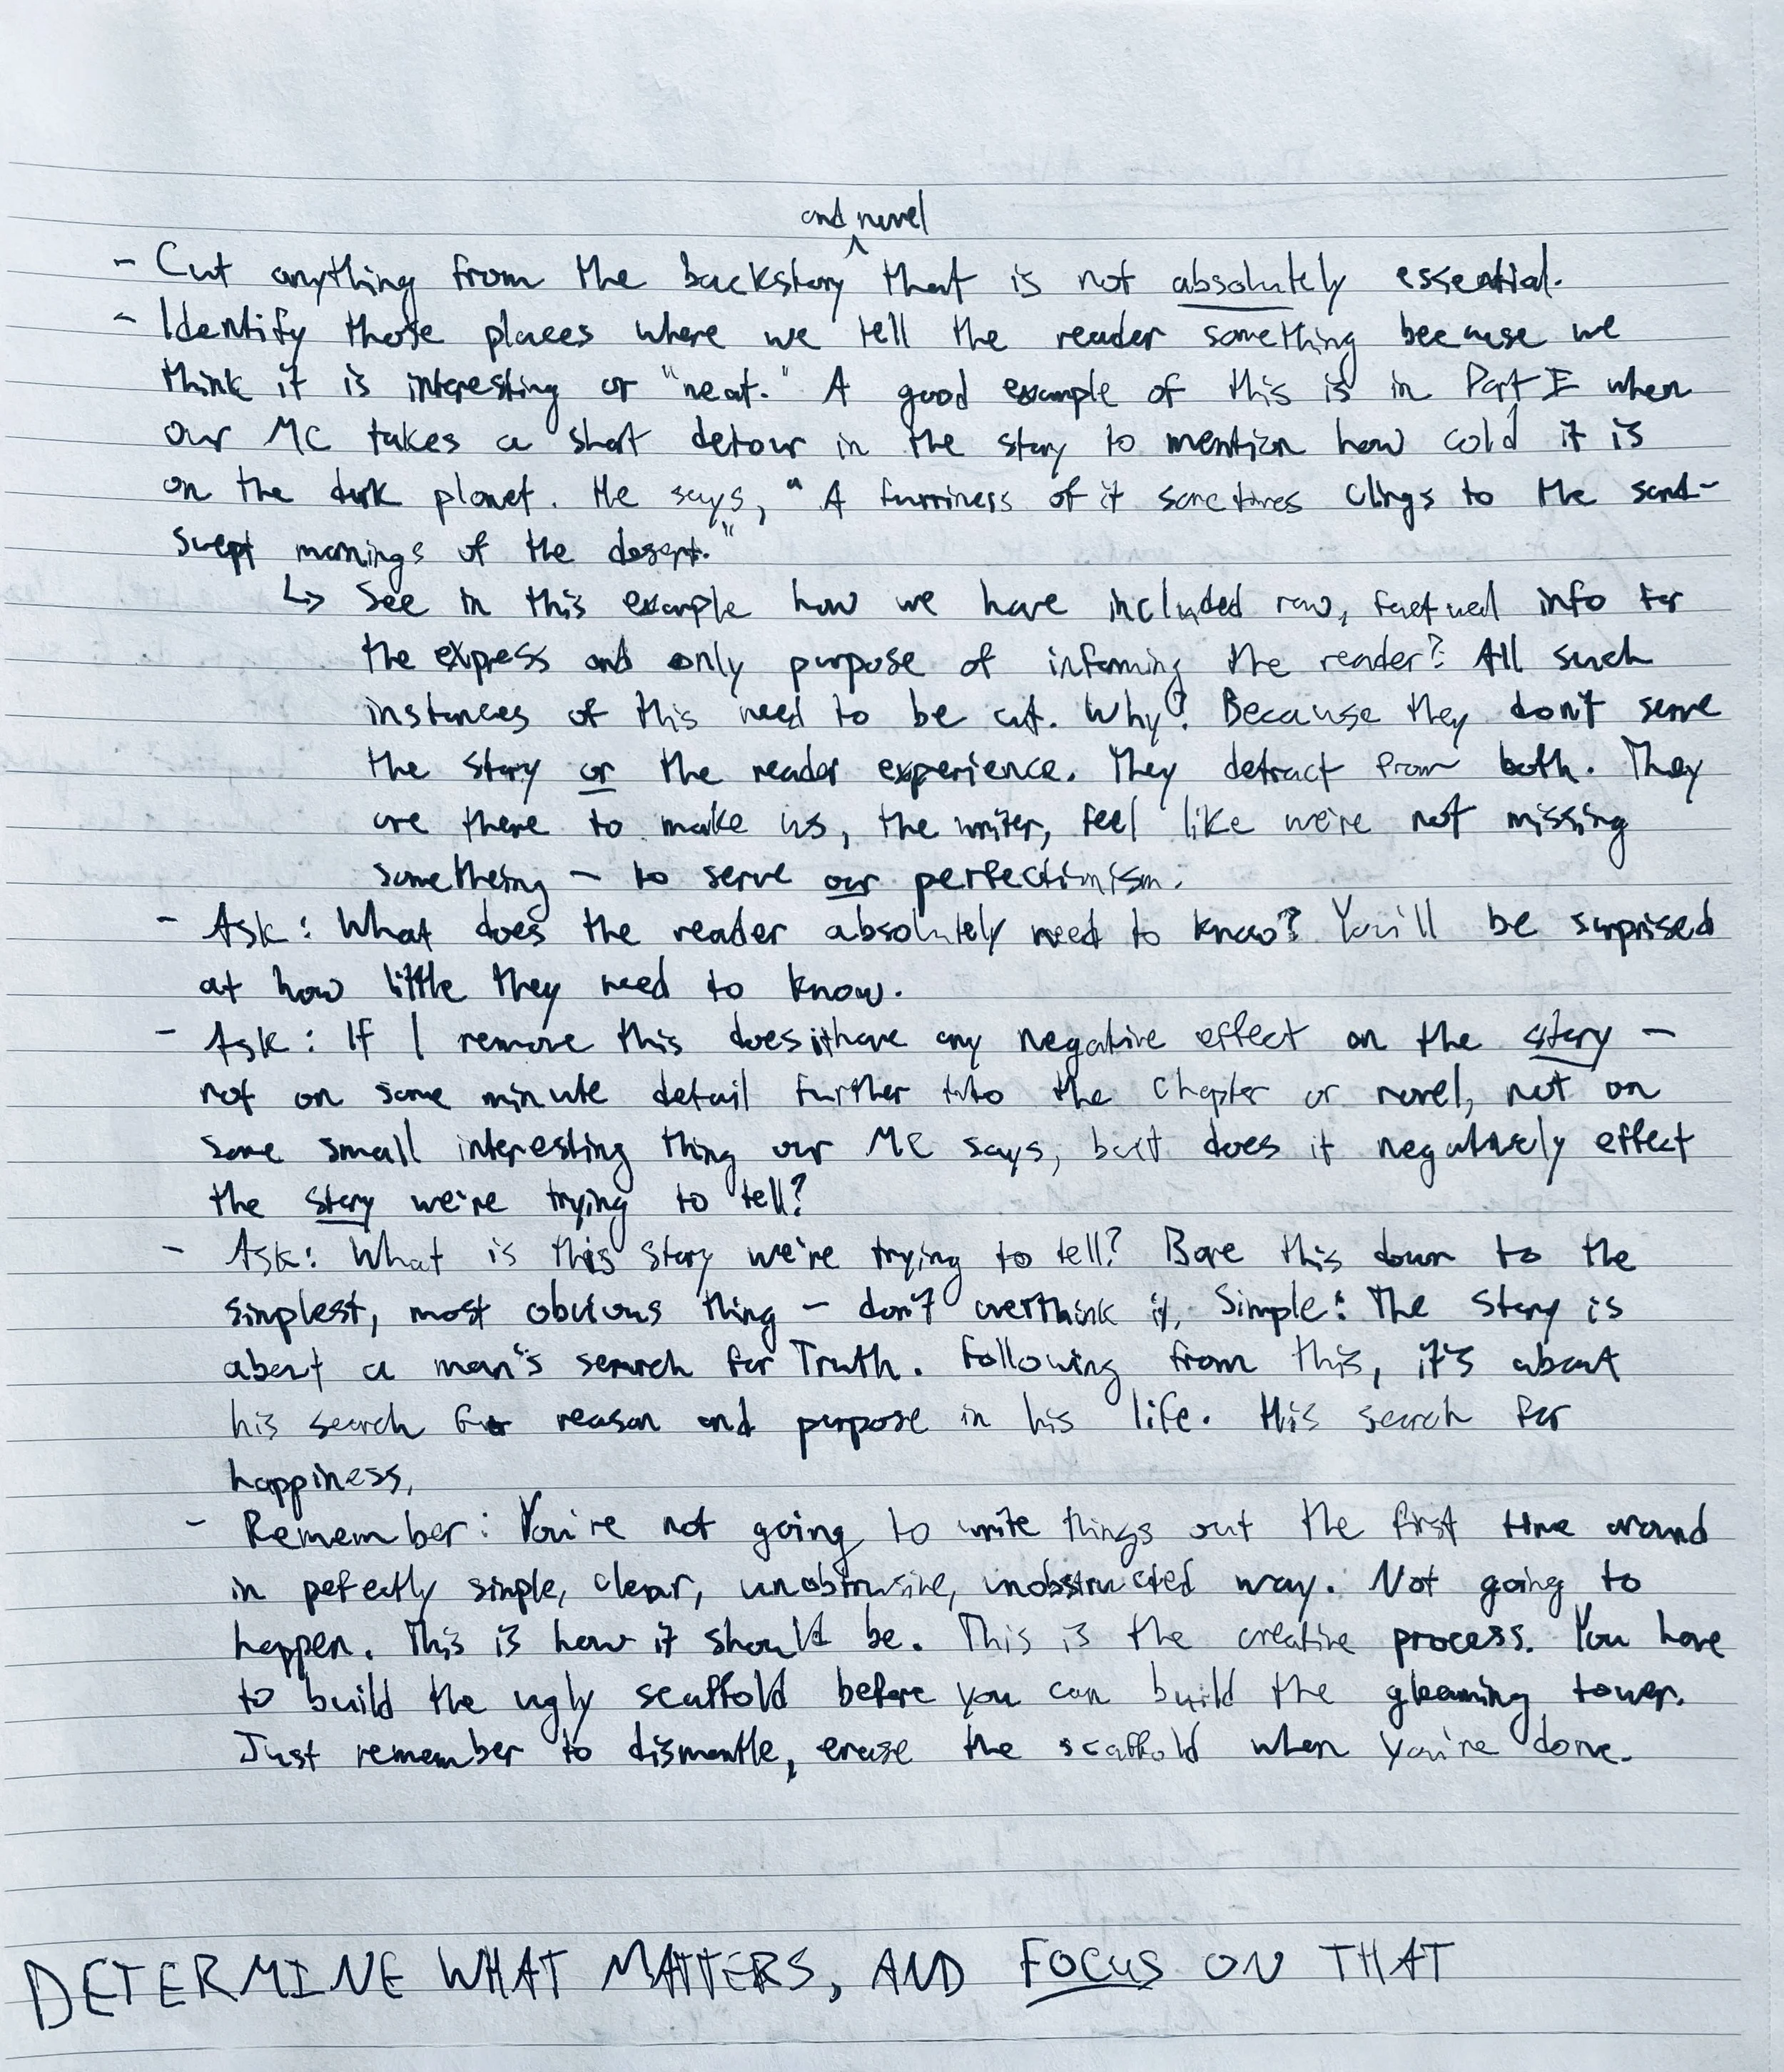 and novel
- Cut anything from the backstory ^ that is not absolutely essential.
- Identify those places where we tell the reader something because we
think it is interesting or "neat." A good example of this is in Part I when
our MC takes a short detour in the story to mention how cold it is
on the dark planet. He says, "A furriness of it sometimes clings to the sand-
swept mornings of the desert."
↳ See in this example how we have included raw, factual info for
the express and only purpose of informing the reader? All such
instances of this need to be cut. Why? Because they don't serve
the story or the reader experience. They detract from both. They
are there to make us, the writer, feel like we're not missing
something - to serve our perfectionism.
- Ask: What does the reader absolutely need to know? You'll be surprised
at how little they need to know.
- Ask: If I remove this does it have any negative effect on the story -
not on some minute detail further into the chapter or novel, not on
some small interesting thing our MC says, but does it negatively effect
the story we're trying to tell?
- Ask: What is this story we're trying to tell? Bare this down to the
simplest, most obvious thing - don't overthink it. Simple: The story is
about a man's search for Truth. Following from this, it's about
his search for reason and purpose in his life. His search for
happiness.
- Remember: You're not going to write things out the first time around
in pefectly simple, clear, unobtrusive, unobstructed way. Not going to
happen. This is how it should be. This is the creative process. You have
to build the ugly scaffold before you can build the gleaming tower.
Just remember to dismantle, erase the scaffold when you're done.
DETERMINE WHAT MATTERS, AND FOCUS ON THAT